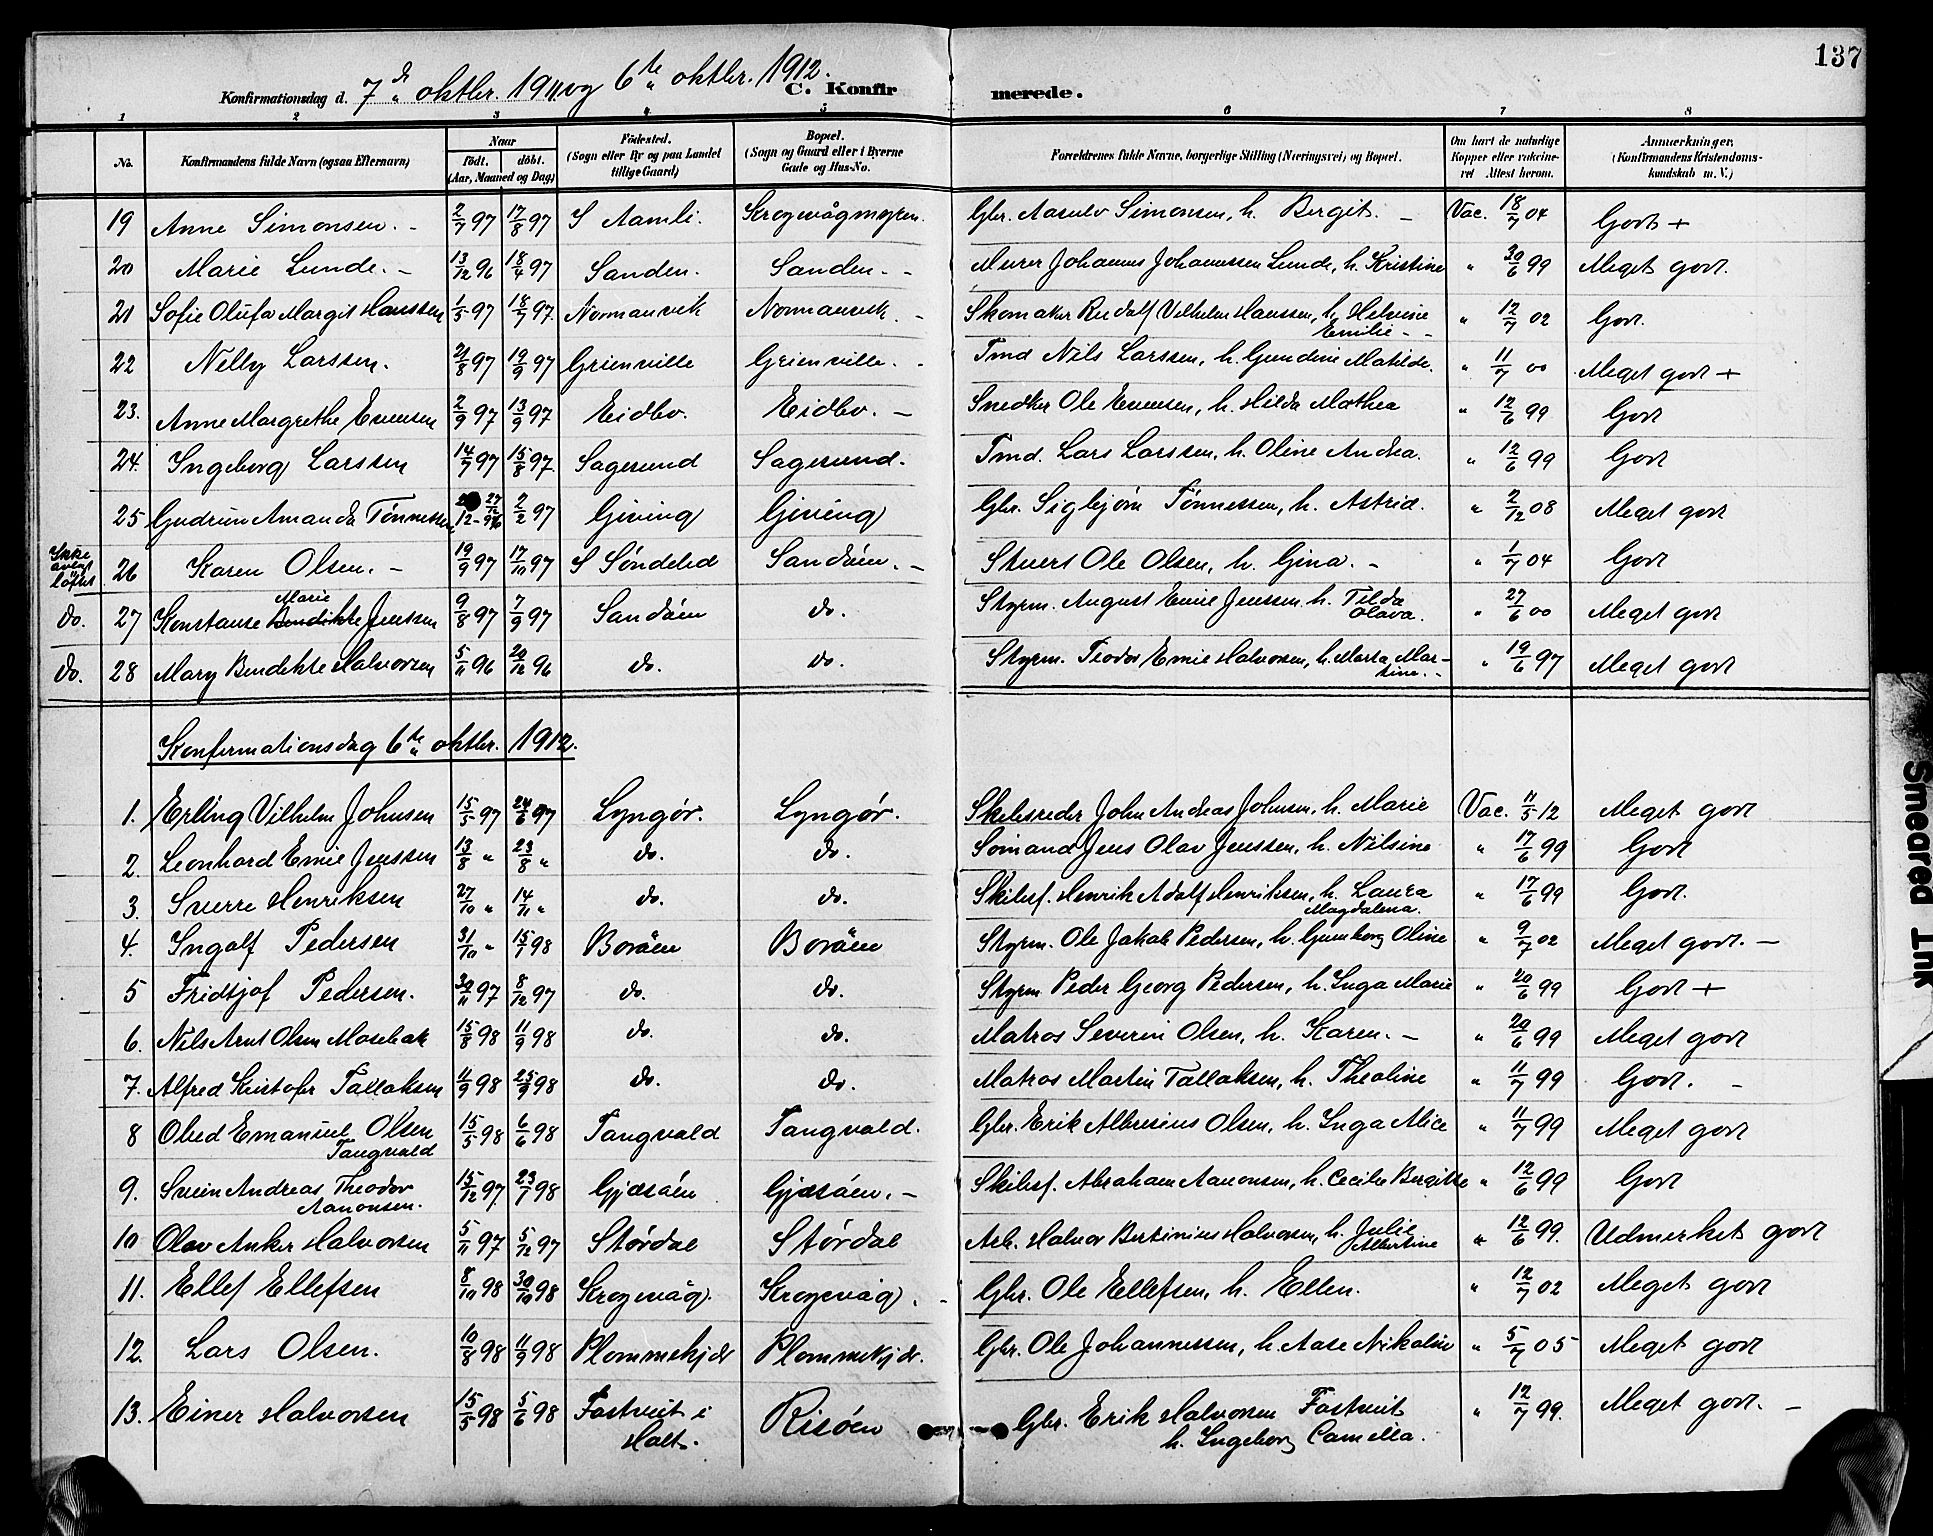 137
Konfirmationsdag d. 7de oktbr. 1911 og 6te oktbr. 1912.
C. Konfirmerede.
1 2 3 4 5 6 7 8
No. Konfirmandens fulde Navn (ogsaa Efternavn) Naar født. døbt. (Aar, Maaned og Dag) Födested. (Sogn eller By og paa Landet tillige Gaard) Bopæl. (Sogn og Gaard eller i Byerne Gade og Hus-No. Forældrenes fulde Navne, borgerlige Stilling (Næringsvei) og Bopæl. Om havt de naturlige Kopper eller vakcineret Attest herom. Anmærkninger, (Konfirmandens Kristendomskundskab m. V.)
19 Anne Simonsen. - 2/7 97 17/8 97 S Aamli. Krogevågmyren. Gbr. Aasulv Simonsen, h. Bergit. - Vac. 18/7 04 Godt +
20 Marie Lunde. - 13/12 96 18/4 97 Sanden. Sanden. - Murer Johannes Johannssen Lunde, h. Kristine " 30/6 99 Meget godt.
21 Sofie Olufa Margit Hanssen 1/5 97 18/7 97. Normanvik Normanvik. - Skomaker Rudolf Vilhelm Hanssen, h. Helvine Emilie - - " 12/7 02 Godt.
22 Nelly Larssen. 21/8 97 19/9 97 Grienville Grienville. - Tmd Nils Larssen, h. Gundine Matilde. " 11/7 00 Meget godt +
23. Anne Margrethe Evensen 2/9 97 13/9 97 Eidbo. Eidbo. - Snedker Ole Evensen, h. Hilda Mathea " 12/6 99 Godt
24. Ingeborg Larssen 14/7 97 15/8 97. Sagesund Sagesund. Tmd. Lars Larssen, h. Oline Andrea. " 12/6 99 Godt
25 Gudrun Amanda Tönnessen 27/12 - 96 2/2 97 Giving Giving Gbr. Sigbjörn Tönnessen, h. Astrid. " 2/12 08 Meget godt
Ikke avlagt löftet 26 Karen Olsen. - 19/9 97 17/10 97 S Söndeled Sandöen. - Stuert Ole Olsen, h. Gina. - " 1/7 04 Godt
do. 27 Konstanse Marie Bendikte Jenssen 9/8 97 7/9 97 Sandöen do. Styrm. August Emil Jenssen h. Tilda Olava. " 27/6 00 Meget godt
do. 28 Mary Bendikte Halvorsen 5/11 96 20/12 96 do. do. Styrm. Teodor Emil Halvorsen, h. Marta Martine. - " 19/6 97 Meget godt
Konfirmationsdag 6te oktbr. 1912.
1. Erling Vilhelm Johnsen 15/5 97 24/6 97 Lyngör. Lyngör. Skibsreder John Andreas Johnsen, h. Marie Vac. 11/5 12 Meget godt
2. Leonhard Emil Jenssen 13/8 " 23/8 " do. do. Sömand Jens Olav Jenssen, h. Nilsine " 17/6 99 Godt
3. Sverre Henriksen 27/10 " 14/11 " do. do. Skibsf. Henrik Adolf Henriksen, h. Laura Magdalena. " 17/6 99 Godt.
4. Ingolf Pedersen 31/10 " 15/1 98 Boröen Boröen Styrm. Ole Jakob Pedersen, h. Gunborg Oline " 9/7 02 Meget godt. -
5 Fridtjof Pedersen. 30/11 97 8/12 97 do. do. Styrm Peder Georg Pedersen, h. Inga Marie " 20/6 99 Godt +
6. Nils Arnt Olsen Mosebak 15/8 98 11/9 98 do. do. Matros Severin Olsen, h. Karen. - " 20/6 99 Meget godt
7. Alfred Kristofer Tallaksen 11/9 98 25/9 98 do. do. Matros Martin Tallaksen, h. Theoline " 11/7 99 Godt. -
8 Obed Emanuel Olsen Tangvald 15/5 98 6/6 98 Tangvald Tangvald. Gbr. Erik Albresius Olsen, h. Inga Alice " 11/7 99 Meget godt
9. Svein Andreas Theodor Aanonsen. 15/12 97. 23/1 98 Gjæsöen Gjæsöen. - Skibsf. Abraham Aanonsen, h. Cecilie Bergitte " 12/6 99 Godt
10 Olav Anker Halvorsen 5/11 97 5/12 97 Stördal Stördal Arb. Halvor Bertinius Halvorsen, h. Julie Albertine " 12/6 99. Udmerket godt
11. Ellef Ellefsen 8/10 98 30/10 98 Krogevåg. Krogevåg. - Gbr. Ole Ellefsen, h. Ellen. " 12/7 02 Meget godt
12. Lars Olsen. 10/8 98 11/9 98 Plommekjær Plommekjær. Gbr. Ole Johannessen, h. Aase Nikoline " 5/7 05 Meget godt
13. Einer Halvorsen 15/5 98 5/6 98 Fostveit i Holt. Risöen Gbr. Erik Halvorsen Fostveit h. Ingeborg Camilla. " 12/7 99. Meget godt. -
Smeared Ink